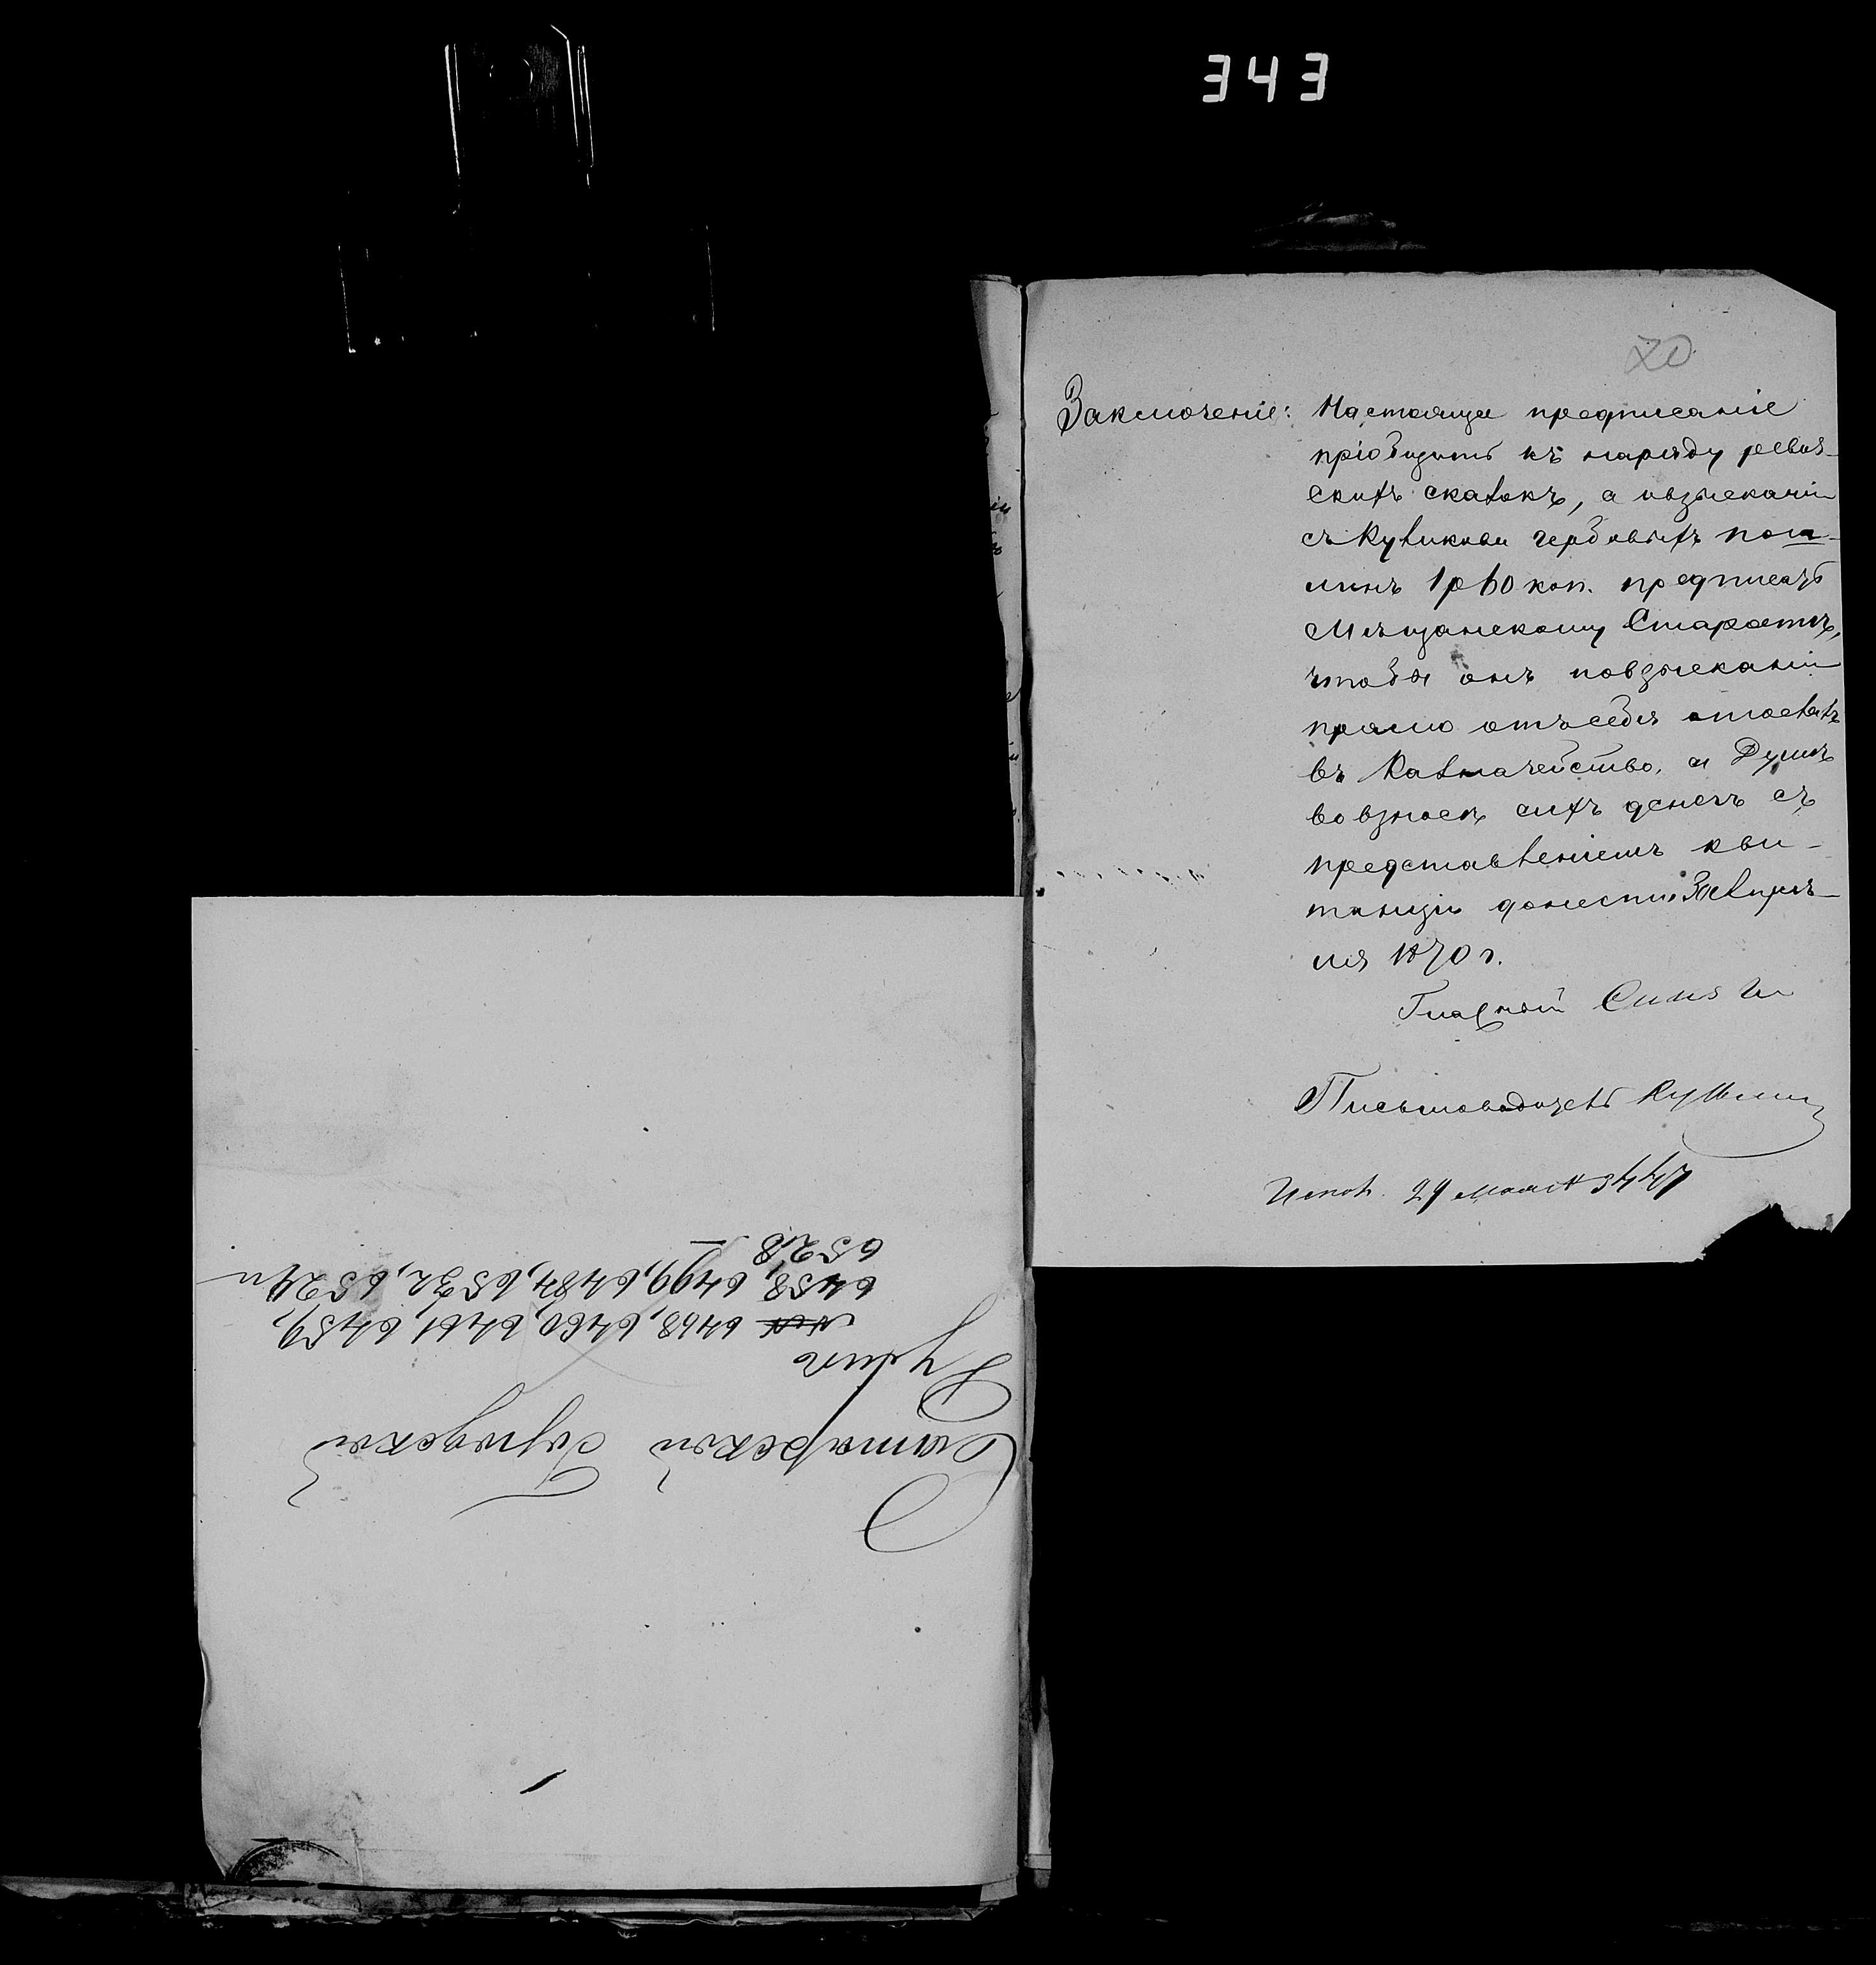 343
20
Заключеніе: Настоящее предписаніе
пріобщить къ наряду ревиз-
скихъ сказокъ, а о взысканіи
съ Куликова гербовыхъ пош-
линъ 1 р 60 коп. предписать
Мѣщанскому Старостѣ,
чтобы онъ по взысканіи
прямо отъ себя отослалъ
въ Казначейство, а Думѣ
о взносѣ сихъ денегъ съ
представленіемъ кви-
танціи донести
ля 1870 г.
Гласный
Письмоводитель
Испол. 29 3447
Самарской Городской
Думѣ
6468, 6460, 6461, 6459,
6458, 6499, 6484, 6532, 6524 и
6528